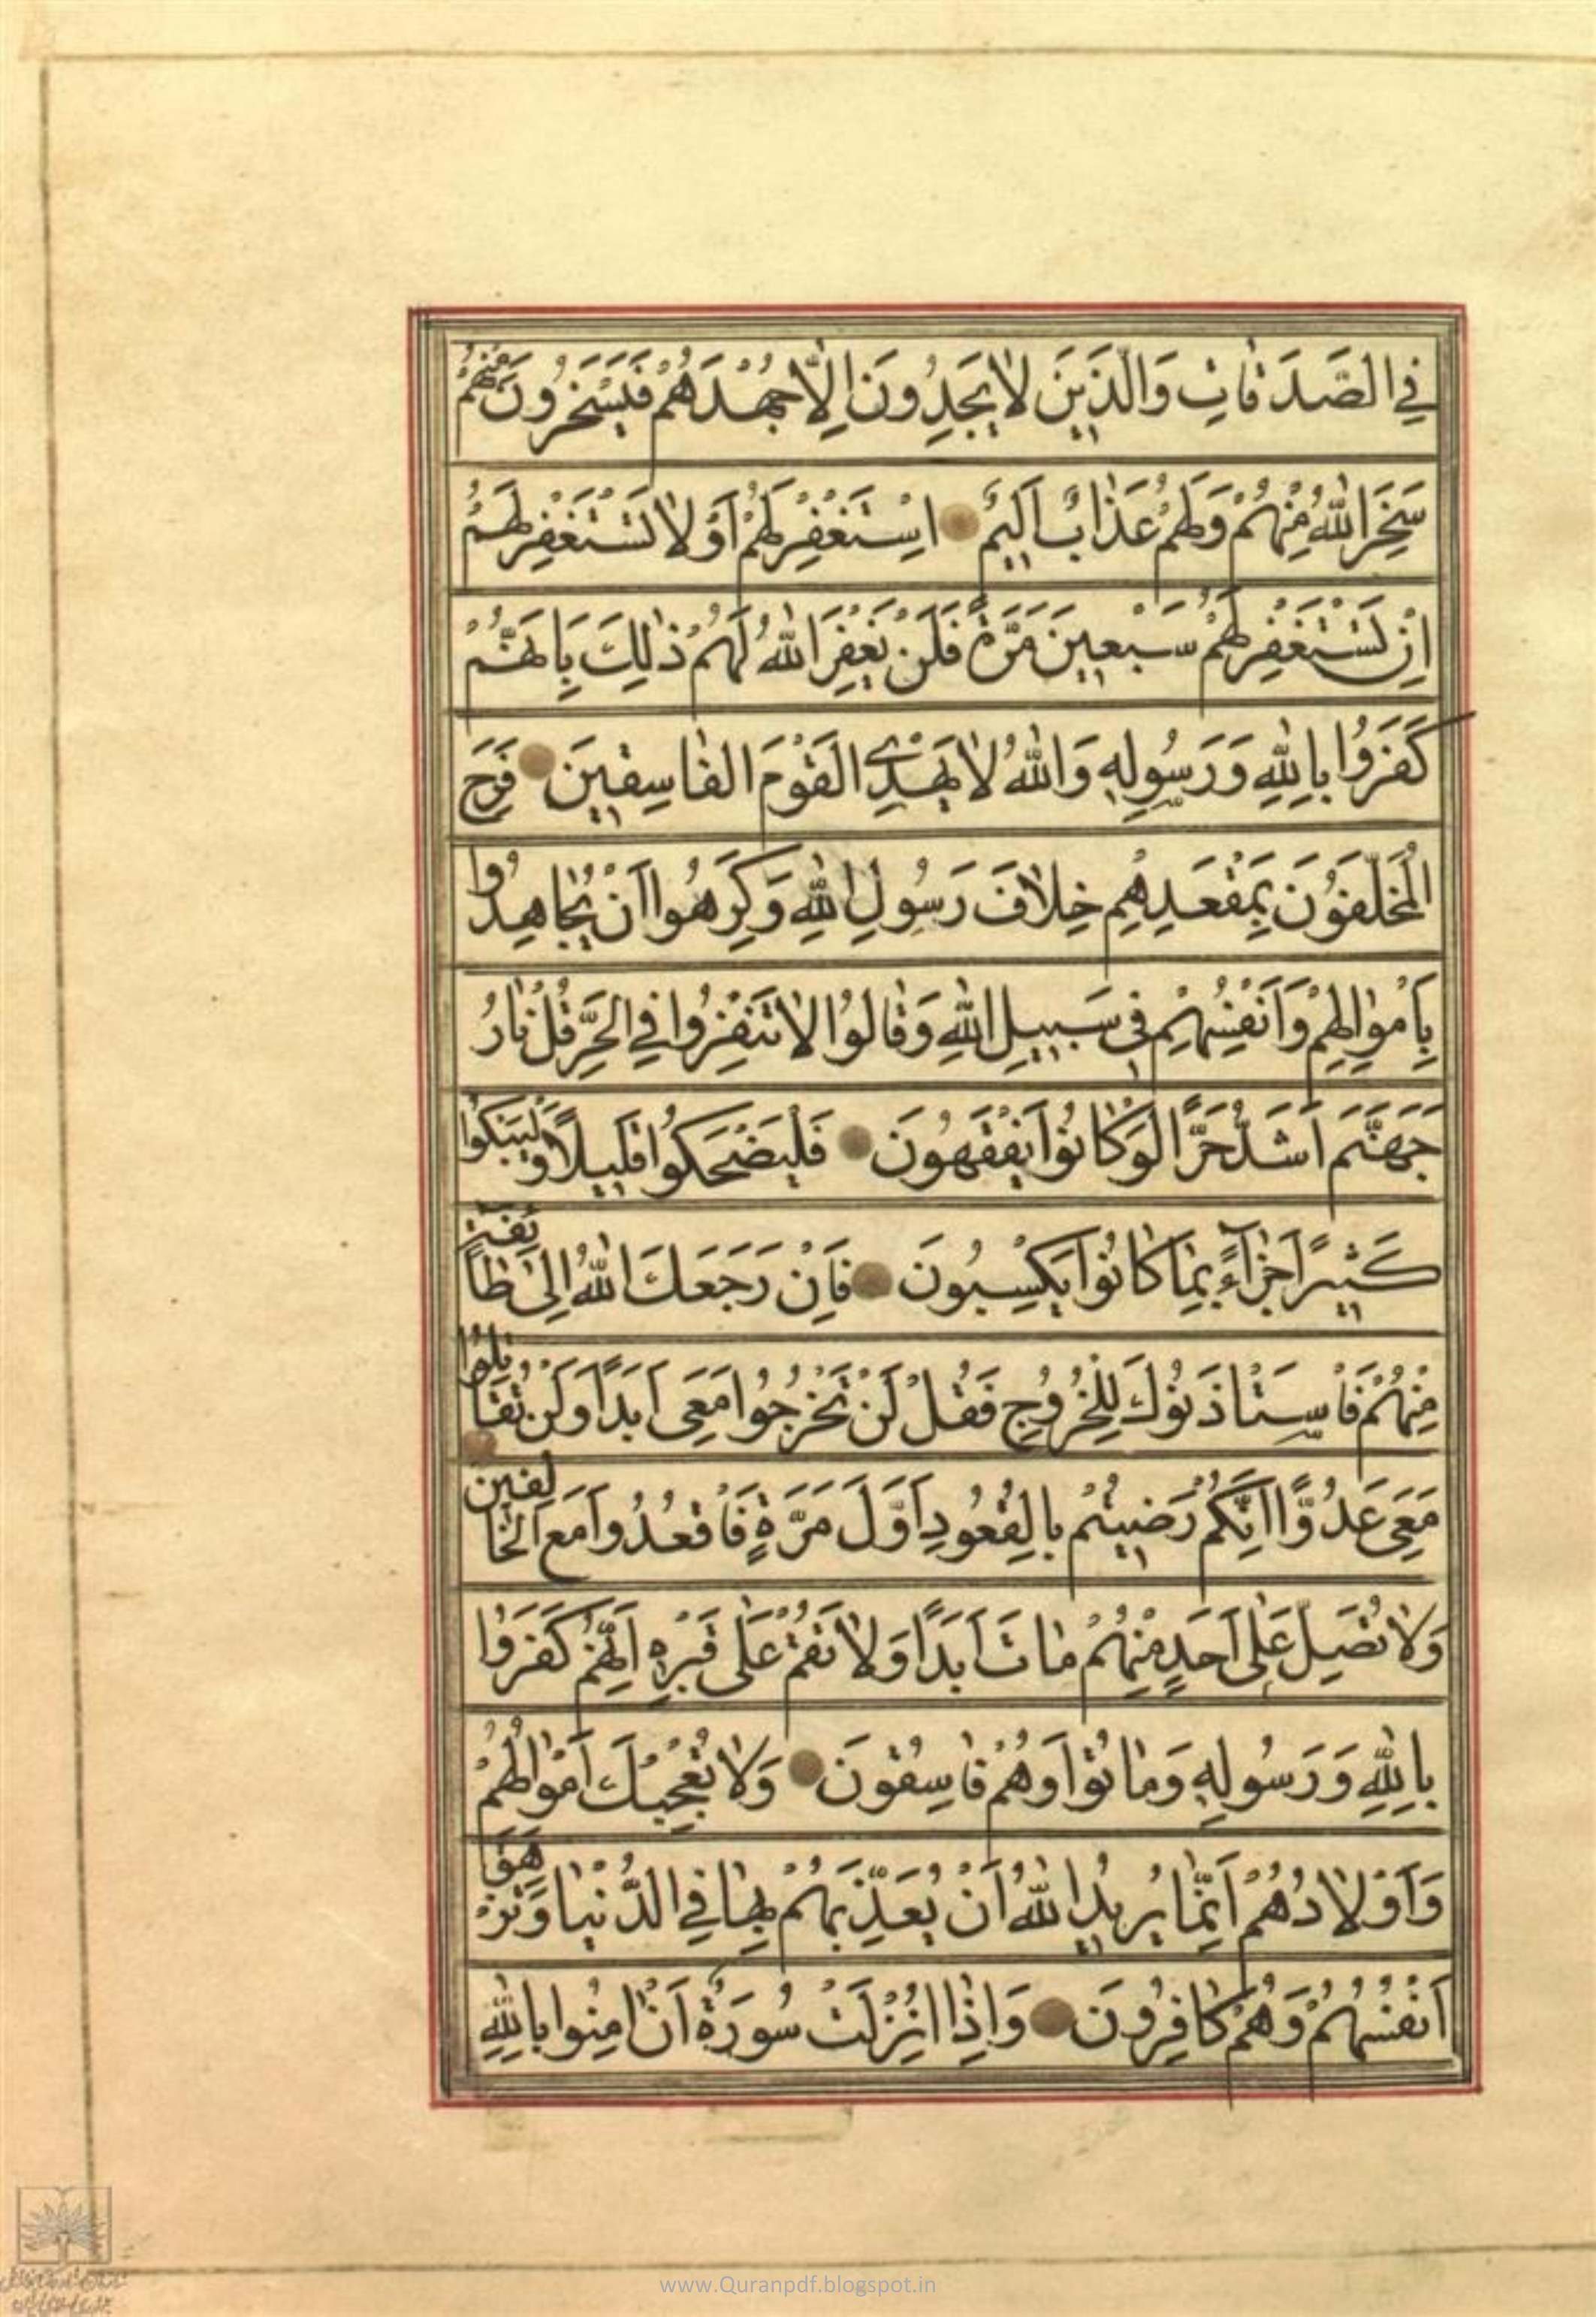 فِي الصَّدَقَاتِ وَالَّذِينَ لَا يَجِدُونَ اِلَّا جُهْدَهُمْ فَيَسْخَرُونَ مِنْهُمْ
سَخِرَ اللهُ مِنْهُمْ وَلَهُمْ عَذَابٌ اَلِيمٌ اِسْتَغْفِرْ لَهُمْ اَوْ لَا تَسْتَغْفِرْ لَهُمْ
اِنْ تَسْتَغْفِرْ لَهُمْ سَبْعِينَ مَرَّةً فَلَنْ يَغْفِرَ اللهُ لَهُمْ ذٰلِكَ بِاَنَّهُمْ
كَفَرُوا بِاللهِ وَرَسُولِهِ وَاللهُ لَا يَهْدِي الْقَوْمَ الْفَاسِقِينَ فَرِحَ
الْمُخَلَّفُونَ بِمَقْعَدِهِمْ خِلَافَ رَسُولِ اللهِ وَكَرِهُوا اَنْ يُجَاهِدُوا
بِاَمْوَالِهِمْ وَاَنْفُسِهِمْ فِي سَبِيلِ اللهِ وَقَالُوا لَا تَنْفِرُوا فِي الْحَرِّ قُلْ نَارُ
جَهَنَّمَ اَشَدُّ حَرًّا لَوْ كَانُوا يَفْقَهُونَ فَلْيَضْحَكُوا قَلِيلًا وَلْيَبْكُوا
كَثِيرًا جَزَاءً بِمَا كَانُوا يَكْسِبُونَ فَاِنْ رَجَعَكَ اللهُ اِلٰى طَائِفَةٍ
مِنْهُمْ فَاسْتَاْذَنُوكَ لِلْخُرُوجِ فَقُلْ لَنْ تَخْرُجُوا مَعِيَ اَبَدًا وَلَنْ تُقَاتِلُوا
مَعِيَ عَدُوًّا اِنَّكُمْ رَضِيتُمْ بِالْقُعُودِ اَوَّلَ مَرَّةٍ فَاقْعُدُوا مَعَ الْخَالِفِينَ
وَلَا تُصَلِّ عَلٰى اَحَدٍ مِنْهُمْ مَاتَ اَبَدًا وَلَا تَقُمْ عَلٰى قَبْرِهِ اِنَّهُمْ كَفَرُوا
بِاللهِ وَرَسُولِهِ وَمَاتُوا وَهُمْ فَاسِقُونَ وَلَا تُعْجِبْكَ اَمْوَالُهُمْ
وَاَوْلَادُهُمْ اِنَّمَا يُرِيدُ اللهُ اَنْ يُعَذِّبَهُمْ بِهَا فِي الدُّنْيَا وَتَزْهَقَ
اَنْفُسُهُمْ وَهُمْ كَافِرُونَ وَاِذَا اُنْزِلَتْ سُورَةٌ اَنْ اٰمِنُوا بِاللهِ
www.Quranpdf.blogspot.in